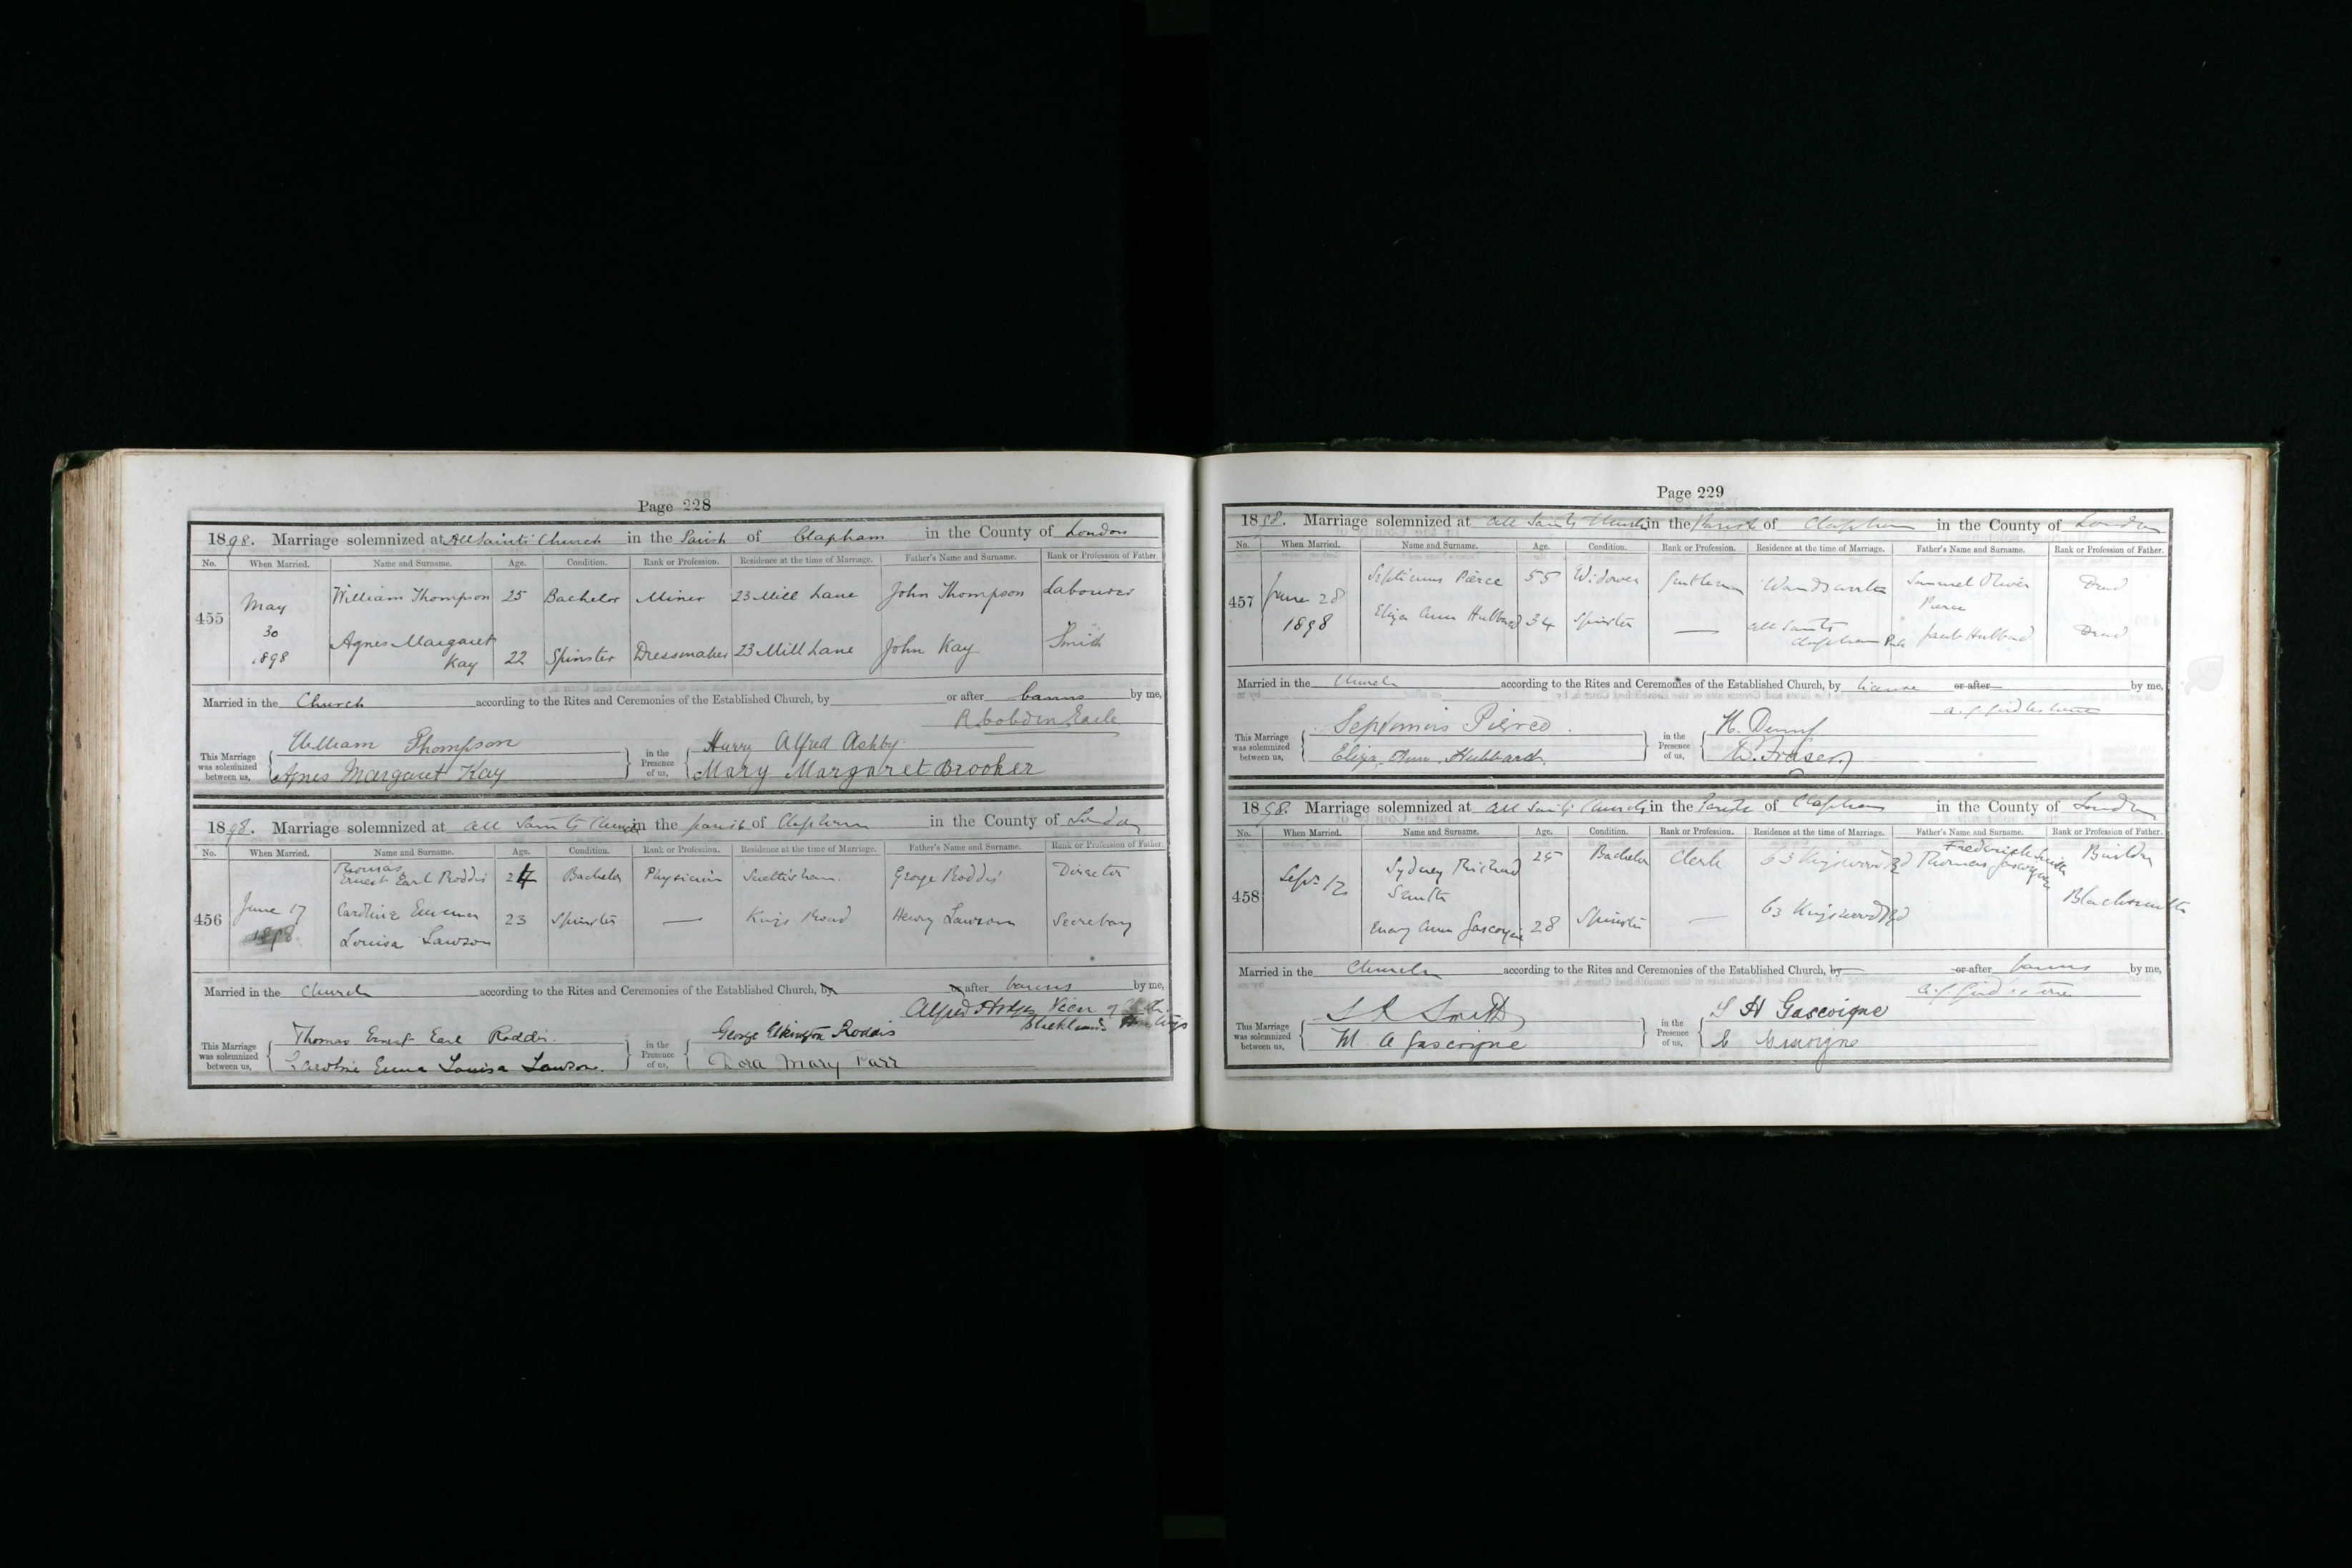 Page 228
1898. Marriage solemnized at All Saints' Church in the Parish of Clapham in the County of London
No. When Married. Name and Surname. Age. Condition. Rank or Profession. Residence at the time of Marriage. Father's Name and Surname. Rank or Profession of Father.
455 May 30 1898
William Thompson 25 Bachelor Miner 23 Mill Lane John Thompson Labourer
Agnes Margaret Kay 22 Spinster Dressmaker 23 Mill Lane John Kay Smith
Married in the Church according to the Rites and Ceremonies of the Established Church, by or after banns by me,
R Cobden Earle
This Marriage was solemnized between us, William Thompson
Agnes Margaret Kay
in the Presence of us, Harry Alfred Ashby
Mary Margaret Brooker
1898. Marriage solemnized at All Saints Church in the parish of Clapham in the County of London
No. When Married. Name and Surname. Age. Condition. Rank or Profession. Residence at the time of Marriage. Father's Name and Surname. Rank or Profession of Father.
456 June 17 1898
Thomas Ernest Earl Roddis Bachelor Physician George Roddis Director
Caroline Emma Louisa Lawson 23 Spinster — Kings Road Henry Lawson Secretary
Married in the Church according to the Rites and Ceremonies of the Established Church, by or after banns by me,
Alfred Hodges Vicar of
This Marriage was solemnized between us, Thomas Ernest Earl Roddis.
Caroline Emma Louisa Lawson.
in the Presence of us, George Elkington Roddis
Dora Mary Parr
Page 229
1898. Marriage solemnized at All Saints Church in the Parish of Clapham in the County of London
No. When Married. Name and Surname. Age. Condition. Rank or Profession. Residence at the time of Marriage. Father's Name and Surname. Rank or Profession of Father.
457 June 28 1898
Septimus Pierce 55 Widower Gentleman Wandsworth Samuel Oliver Pierce Dead
Eliza Ann Hubbard 34 Spinster — All Saints Clapham Park Hubbard Dead
Married in the Church according to the Rites and Ceremonies of the Established Church, by license or after by me,
This Marriage was solemnized between us, Septimus Pierce.
Eliza Ann Hubbard.
in the Presence of us, H. Denny
W. Fraser
1898. Marriage solemnized at All Saints Church in the Parish of Clapham in the County of London
No. When Married. Name and Surname. Age. Condition. Rank or Profession. Residence at the time of Marriage. Father's Name and Surname. Rank or Profession of Father.
458 Sept 12
Sydney Richard Smith 25 Bachelor Clerk 63 Kingswood Rd Frederick Smith Builder
Mary Ann Gascoigne 28 Spinster — 63 Kingswood Rd Thomas Gascoigne Blacksmith
Married in the Church according to the Rites and Ceremonies of the Established Church, by or after banns by me,
This Marriage was solemnized between us, S R Smith
M A Gascoigne
in the Presence of us, S H Gascoigne
Gascoigne